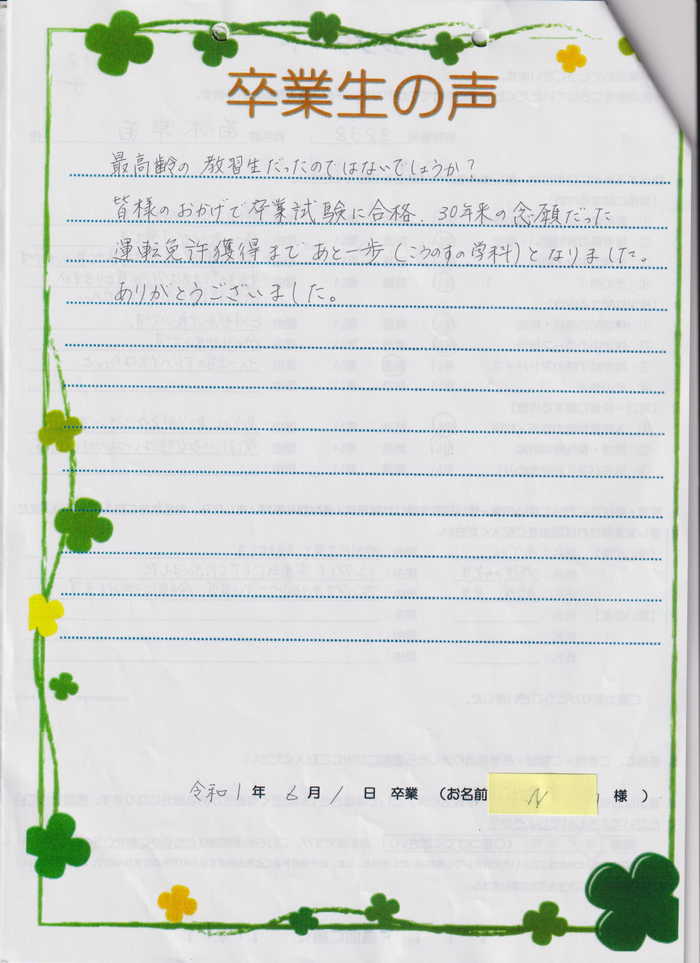 卒業生の声
最高齢の教習生だったのではないでしょうか?
皆様のおかげで卒業試験に合格、30年来の念願だった
運転免許獲得まであと一歩(こうのすの学科)となりました。
ありがとうございました。
令和1年6月1日 卒業 (お名前 N 様)